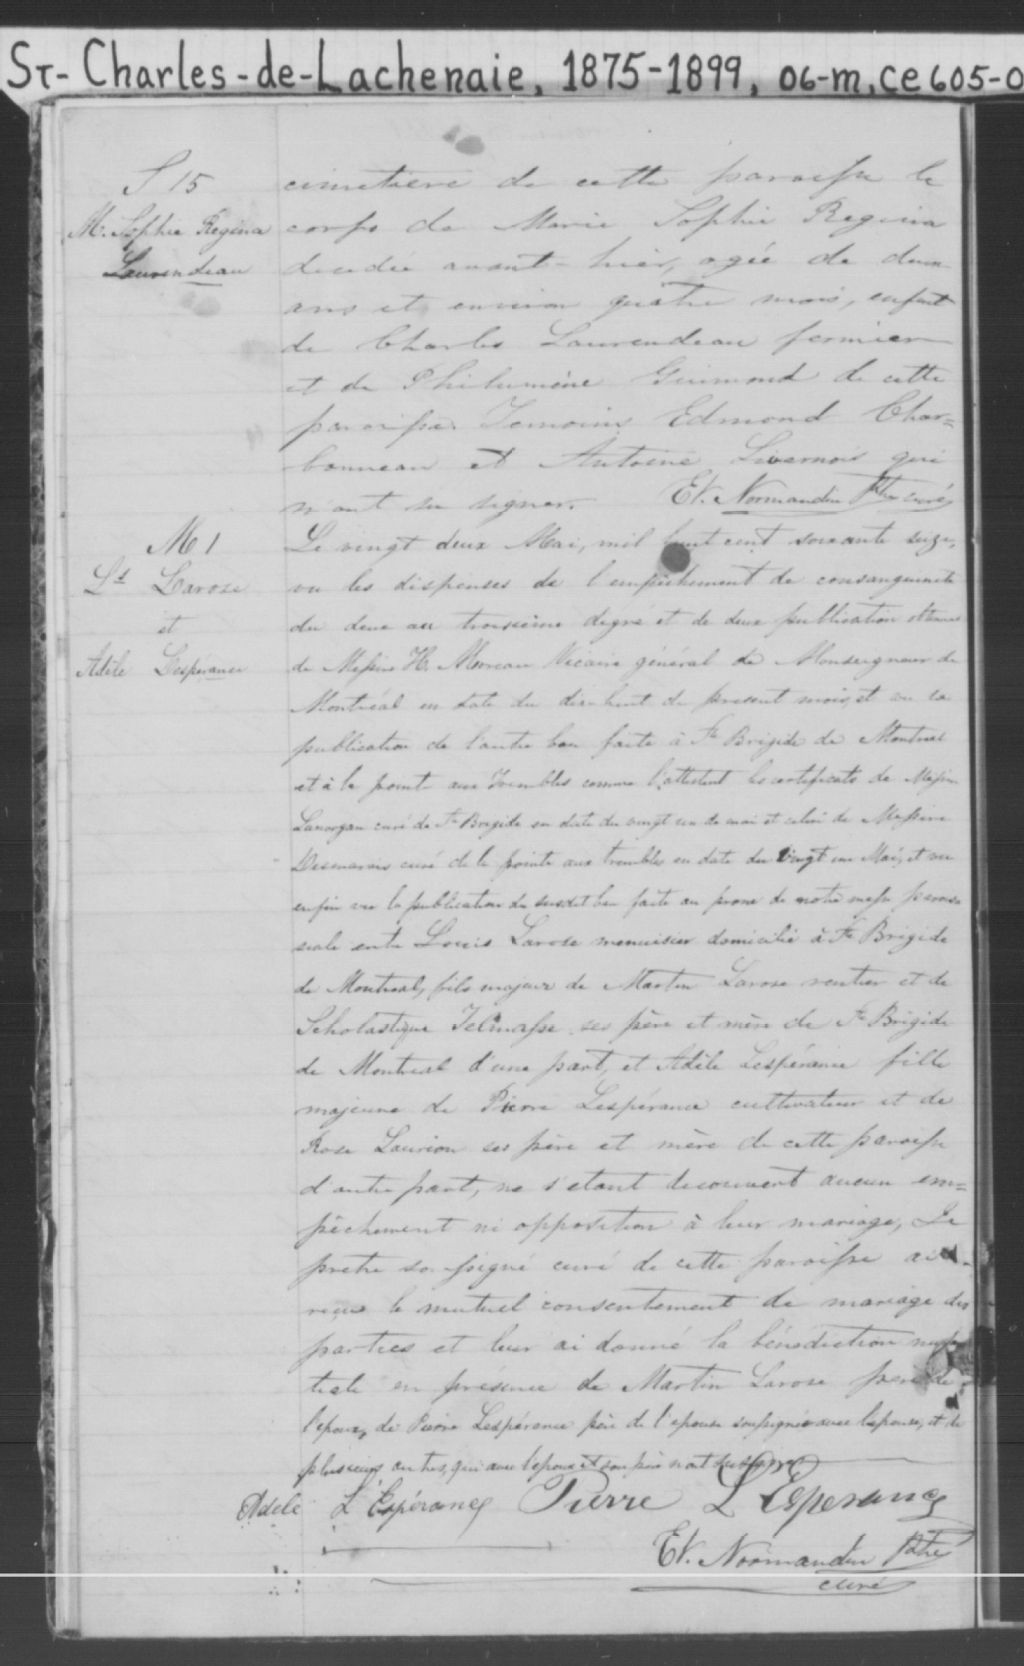 St-Charles-de-Lachenaie, 1875-1899, 06-m, ce605-0
S 15
M. Sophie Regina
Laurendeau
cimetière de cette paroisse le
corps de Marie Sophie Regina
decedée avant-hier, agée de deux
ans et environ quatre mois, enfant
de Charles Laurendeau fermier
et de Philumène Guimond de cette
paroisse. Temoins Edmond Char=
bonneau et Antoine Livernois qui
n'ont su signer. Et. Normandin Ptre curé
M 1
Ls Larose
et
Adèle Lespérance
Le vingt deux Mai, mil huit cent soixante seize,
vu les dispenses de l'empêchement de consanguinité
du deux au troisième degré et de deux publication obtenues
de Messire H. Moreau Vicaire général de Monseigneur de
Montréal en date du dix-huit du present mois, et vu la
publication de l'autre ban faite à Ste Brigide de Montreal
et à la pointe aux Trembles comme l'attestent les certificats de Messire
Lonergan curé de Ste Brigide en date du vingt un de mai et celui de Messire
Desmarais curé de la pointe aux trembles en date du Vingt un Mai, et vu
enfin vu la publication du susdit ban faite au prone de notre messe parois
siale entre Louis Larose menuisier domicilié à Ste Brigide
de Montreal, fils majeur de Martin Larose rentier et de
Scholastique ses père et mère de Ste Brigide
de Montreal d'une part, et Adèle Lespérance fille
majeure de Pierre Lespérance cultivateur et de
Rose Laurion ses père et mère de cette paroisse
d'autre part, ne s'etant decouvert aucun em=
pêchement ni opposition à leur mariage, Je
pretre soussigné curé de cette paroisse ai
reçu le mutuel consentement de mariage des
parties et leur ai donné la bénédiction nup
tiale en presence de Martin Larose père de
l'epoux, de Pierre Lespérance père de l'epouse soussigné avec l'epouse, et de
plusieurs autres, qui avec l'epoux et son père n'ont su signer
Adèle L'Espérance Pierre L'Esperance
Et. Normandin Ptre
curé